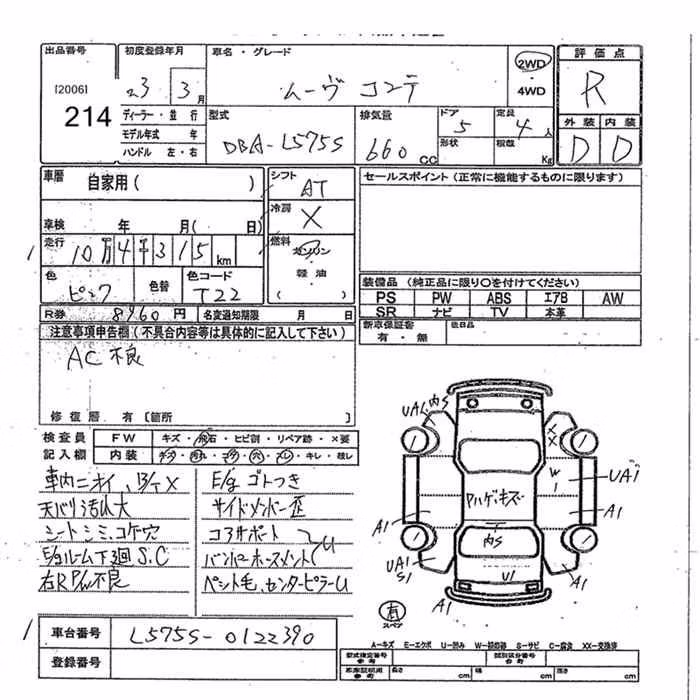 出品番号
[20061]
214
初度登録年月
23 3月
ディーラー・並行
モデル年式 年
ハンドル 左・右
車名・グレード
ムーヴ コンテ
2WD
・
4WD
型式
DBA-L575S
排気量
660 CC
ドア
5
形状
定員
4人
積載
Kg
評価点
R
外装 内装
D D
車歴 自家用( )
車検 年 月( 日)
走行 10万4千315 km
色 ピンク
色替
色コード T22
シフト AT
冷房 X
燃料 ガソリン
軽油
( )
R券 8960円
名変通知期限 月 日
セールスポイント(正常に機能するものに限ります)
装備品 (純正品に限り○を付けてください)
PS PW ABS エアB AW
SR ナビ TV 本革
新車保証書
有・無
後日品
注意事項申告欄(不具合内容等は具体的に記入して下さい)
AC不良
修復歴 有 〔箇所 〕
検査員
記入欄
FW キズ・飛石・ヒビ割・リペア跡・X要
内装 キズ・汚れ・コゲ・穴・スレ・キレ・欠レ
車内ニオイ、B/T X
天バリ汚れ大
シートシミ、コゲ穴
E/gルーム下廻S.C
右R P/W不良
E/gゴトつき
サイドメンバー歪
コアサポート
バンパーホースメント U
ペット毛、センターピラーU
UA1 内S
XX
W1
UA1
A1
A1
Pハゲ・キズ
内S
U1
UA1
S1
A1
A1
有
スペア
A-キズ E-エクボ U-凹み W-補修跡 S-サビ C-腐食 XX-交換済
車台番号 L575S-0122390
登録番号
型式指定番号
参考
類別区分番号
参考
車庫証明用
参考
長さ cm
幅 cm
高さ cm